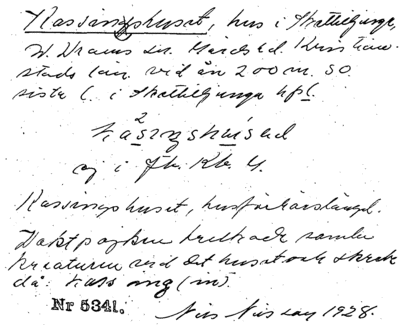 Kassingshuset, hus i Skättiljunga,
V. Vrams sn. Gärds hd. Kristian-
stads län. vid ån 200 m. SO.
sista l. i Skättiljunga hpl.
kasingshused
ej i Jb. Kb. 4.
Kassingshuset, husförhörslängd.
Vaktpojken brukade samla
kreaturen vid det huset och skrek
då: kass ing (in).
Nr 5341.
Nils Nilsson 1928.